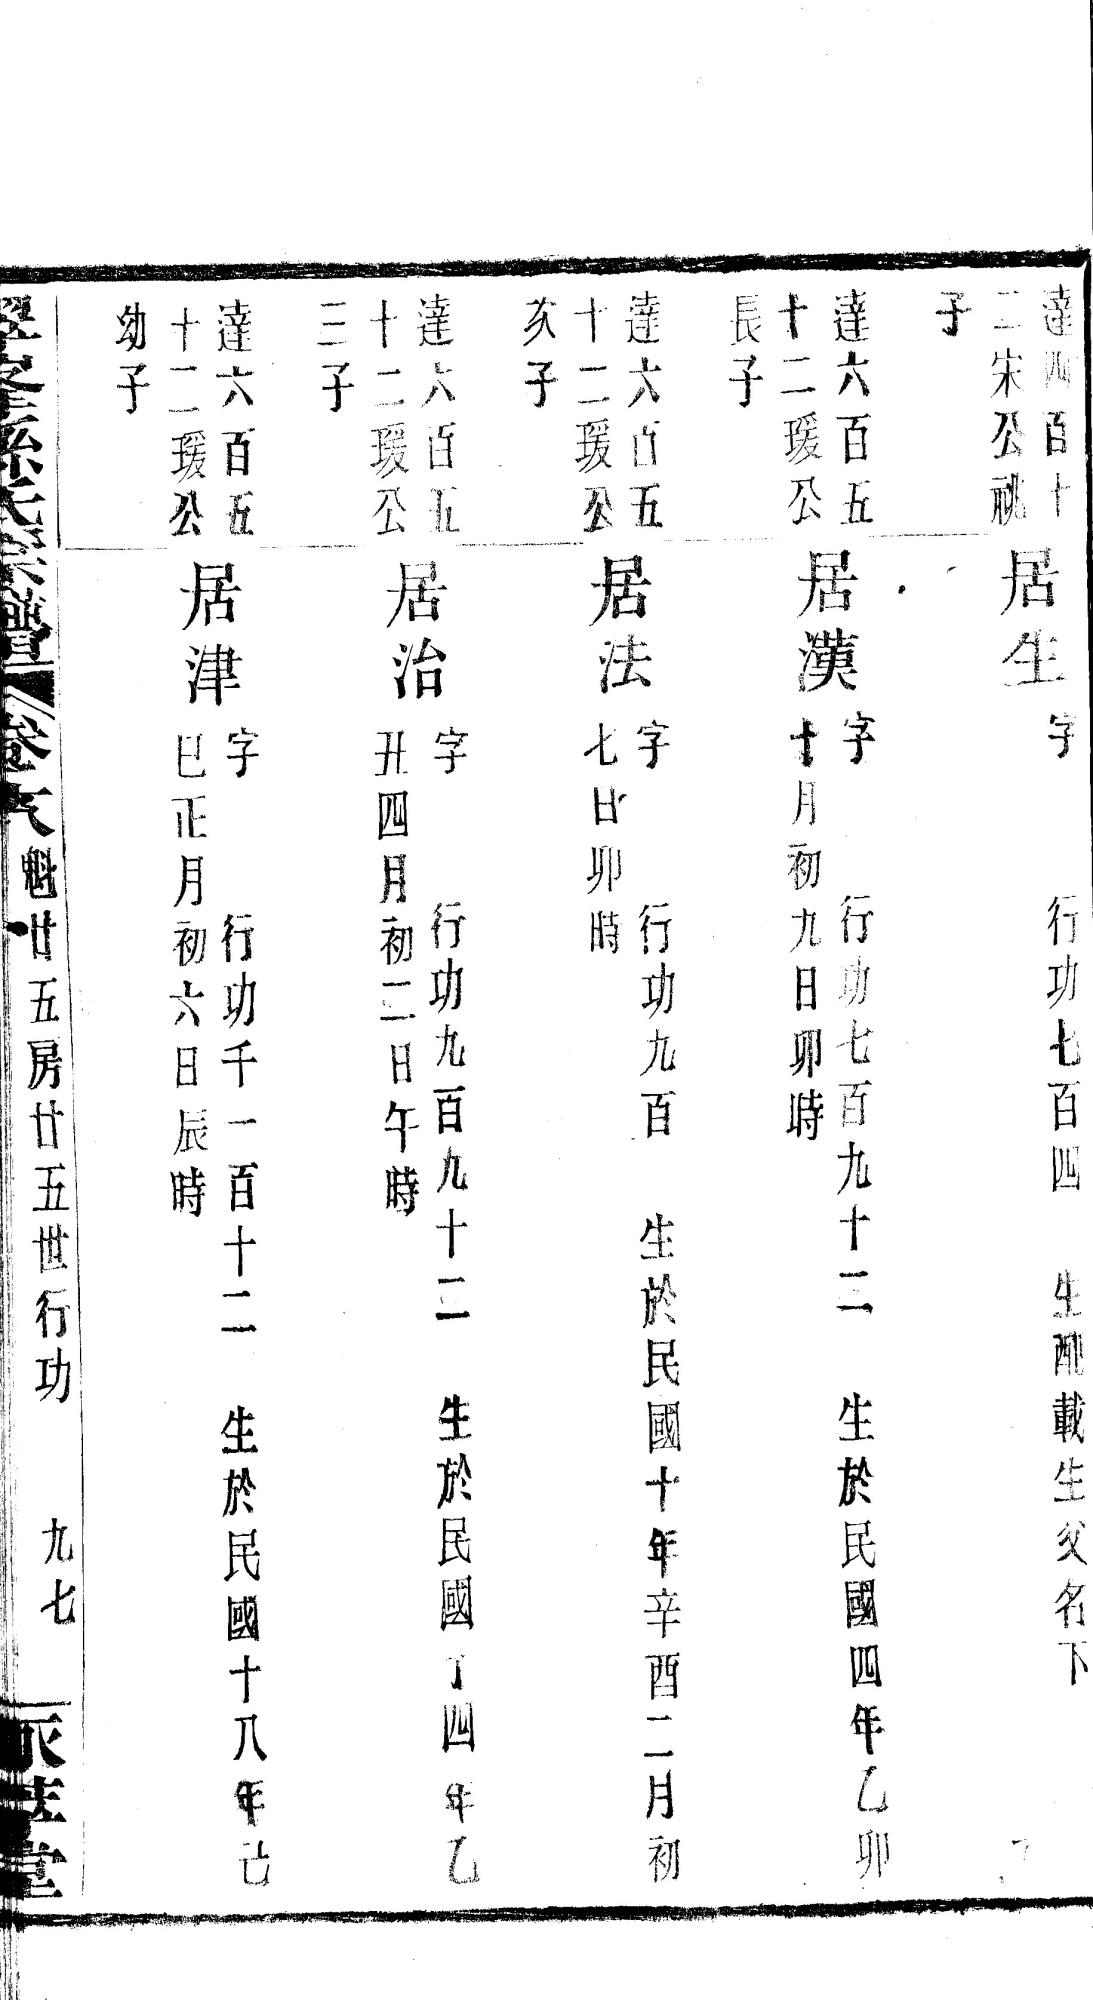 達四百十
二宋公祧
子
居生
字 行功七百四 生配載生父名下
達六百五
十二瑗公
長子
居漢
字 行功七百九十二 生於民國四年乙卯
十月初九日卯時
達六百五
十二瑗公
次子
居法
字 行功九百 生於民國十年辛酉二月初
七日卯時
達六百五
十二瑗公
三子
居治
字 行功九百九十二 生於民國丁四年乙
丑四月初二日午時
達六百五
十二瑗公
幼子
居津
字 行功千一百十二 生於民國十八年己
巳正月初六日辰時
孫氏宗譜 卷 魁廿五房廿五世行功 九七 堂